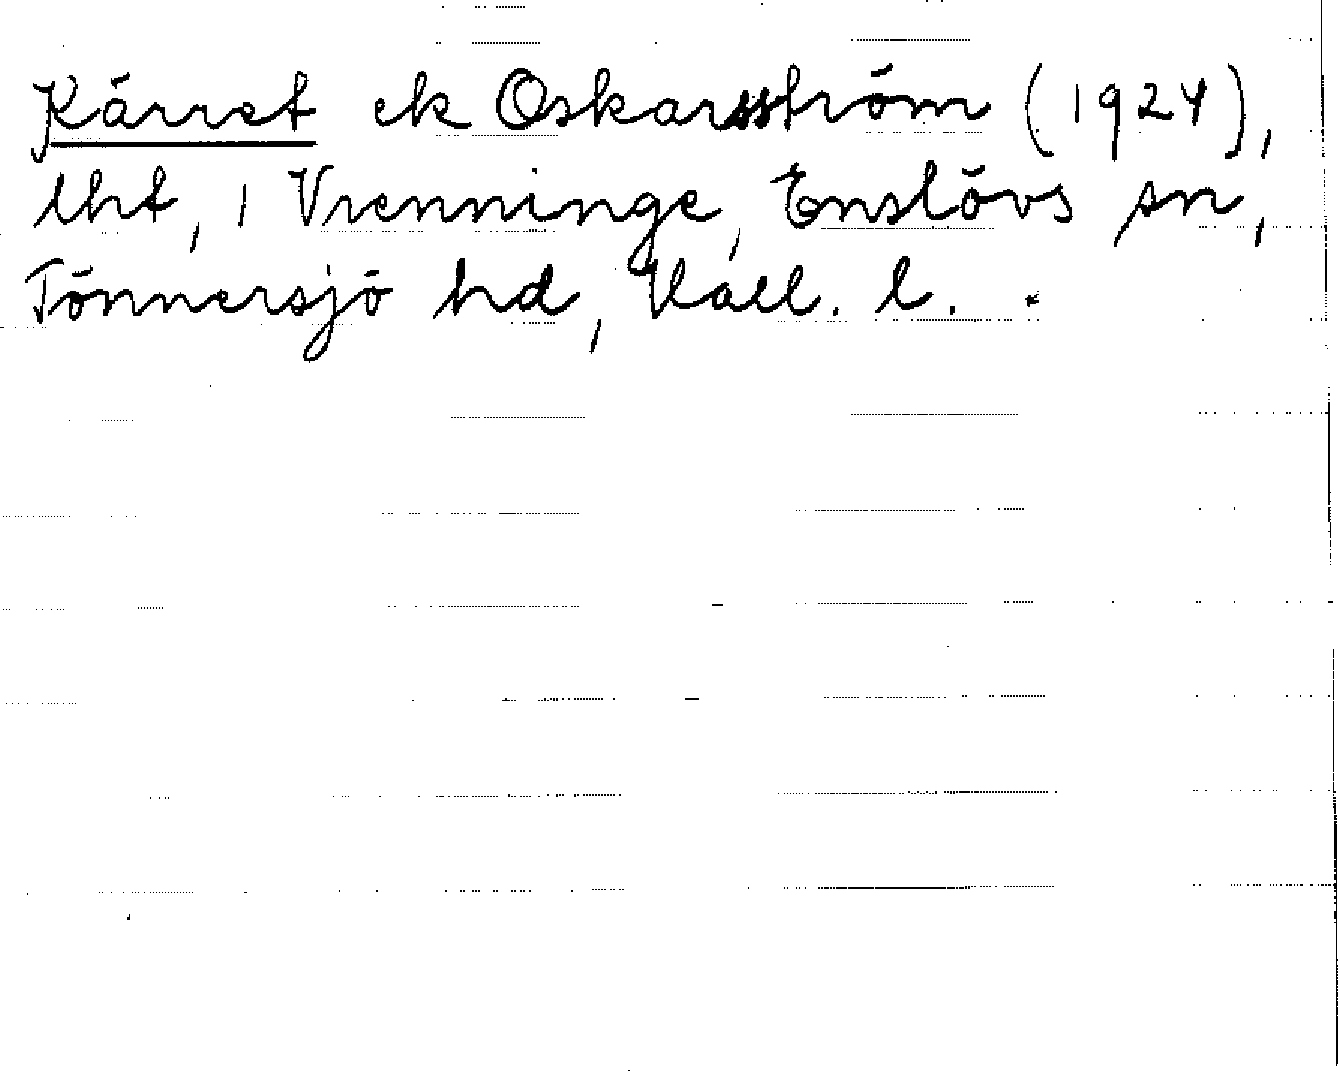 Kärret ek Oskarsström (1924),
lht, 1 Vrenninge, Enslövs sn,
Tönnersjö hd, Hall. l.